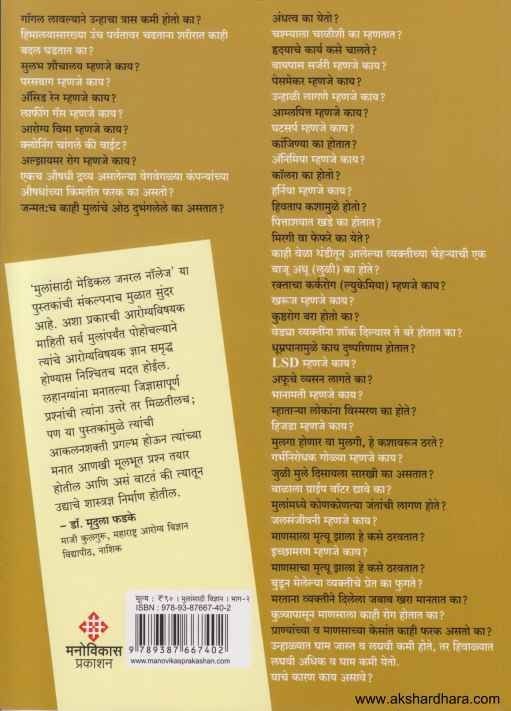 गॉगल लावल्याने उन्हाचा त्रास कमी होतो का?
हिमालयासारख्या उंच पर्वतावर चढताना शरीरात काही
बदल घडतात का?
सुलभ शौचालय म्हणजे काय?
परसबाग म्हणजे काय?
ॲसिड रेन म्हणजे काय?
लाफींग गॅस म्हणजे काय?
आरोग्य विमा म्हणजे काय?
क्लोनिंग चांगले की वाईट?
अल्झायमर रोग म्हणजे काय?
एकच औषधी द्रव्य असलेल्या वेगवेगळ्या कंपन्यांच्या
औषधांच्या किमतीत फरक का असतो?
जन्मत:च काही मुलांचे ओठ दुभंगलेले का असतात?
'मुलांसाठी मेडिकल जनरल नॉलेज' या
पुस्तकांची संकल्पनाच मुळात सुंदर
आहे. अशा प्रकारची आरोग्यविषयक
माहिती सर्व मुलांपर्यंत पोहोचल्याने
त्यांचे आरोग्यविषयक ज्ञान समृद्ध
होण्यास निश्चितच मदत होईल.
लहानग्यांना मनातल्या जिज्ञासापूर्ण
प्रश्नांची त्यांना उत्तरे तर मिळतीलच;
पण या पुस्तकांमुळे त्यांची
आकलनशक्ती प्रगल्भ होऊन त्यांच्या
मनात आणखी मूलभूत प्रश्न तयार
होतील आणि असं वाटतं की त्यातून
उद्याचे शास्त्रज्ञ निर्माण होतील.
– डॉ. मृदुला फडके
माजी कुलगुरू, महाराष्ट्र आरोग्य विज्ञान
विद्यापीठ, नाशिक
मनोविकास
प्रकाशन
मूल्य : ₹ ९० । मुलांसाठी विज्ञान । भाग-२
ISBN : 978-93-87667-40-2
9 789387 667402
www.manovikasprakashan.com
अंधत्व का येतो?
चश्म्याला चाळीशी का म्हणतात?
हृदयाचे कार्य कसे चालते?
बायपास सर्जरी म्हणजे काय?
पेसमेकर म्हणजे काय?
उन्हाळी लागणे म्हणजे काय?
आम्लपित्त म्हणजे काय?
घटसर्प म्हणजे काय?
कांजिण्या का होतात?
ॲनिमिया म्हणजे काय?
कॉलरा का होतो?
हर्निया म्हणजे काय?
हिवताप कशामुळे होतो?
पित्ताशयात खडे का होतात?
मिरगी वा फेफरे का येते?
काही वेळा थंडीतून आलेल्या व्यक्तीच्या चेहऱ्याची एक
बाजू अधू (लुळी) का होते?
रक्ताचा कर्करोग (ल्युकेमिया) म्हणजे काय?
खरूज म्हणजे काय?
कुष्ठरोग बरा होतो का?
वेड्या व्यक्तींना शॉक दिल्यास ते बरे होतात का?
धूम्रपानामुळे काय दुष्परिणाम होतात?
LSD म्हणजे काय?
अफूचे व्यसन लागते का?
भानामती म्हणजे काय?
म्हाताऱ्या लोकांना विस्मरण का होते?
हिजडा म्हणजे काय?
मुलगा होणार वा मुलगी, हे कशावरून ठरते?
गर्भनिरोधक गोळ्या म्हणजे काय?
जुळी मुले दिसायला सारखी का असतात?
बाळाला ग्राईप वॉटर द्यावे का?
मुलांमध्ये कोणकोणत्या जंतांची लागण होते?
जलसंजीवनी म्हणजे काय?
माणसाला मृत्यू झाला हे कसे ठरवतात?
इच्छामरण म्हणजे काय?
माणसाचा मृत्यू झाला हे कसे ठरवतात?
बुडून मेलेल्या व्यक्तीचे प्रेत का फुगते?
मरताना व्यक्तीने दिलेला जवाब खरा मानतात का?
कुत्र्यापासून माणसाला काही रोग होतात का?
प्राण्यांच्या व माणसाच्या केसांत काही फरक असतो का?
उन्हाळ्यात घाम जास्त व लघवी कमी होते, तर हिवाळ्यात
लघवी अधिक व घाम कमी येतो.
याचे कारण काय असावे?
www.akshardhara.com